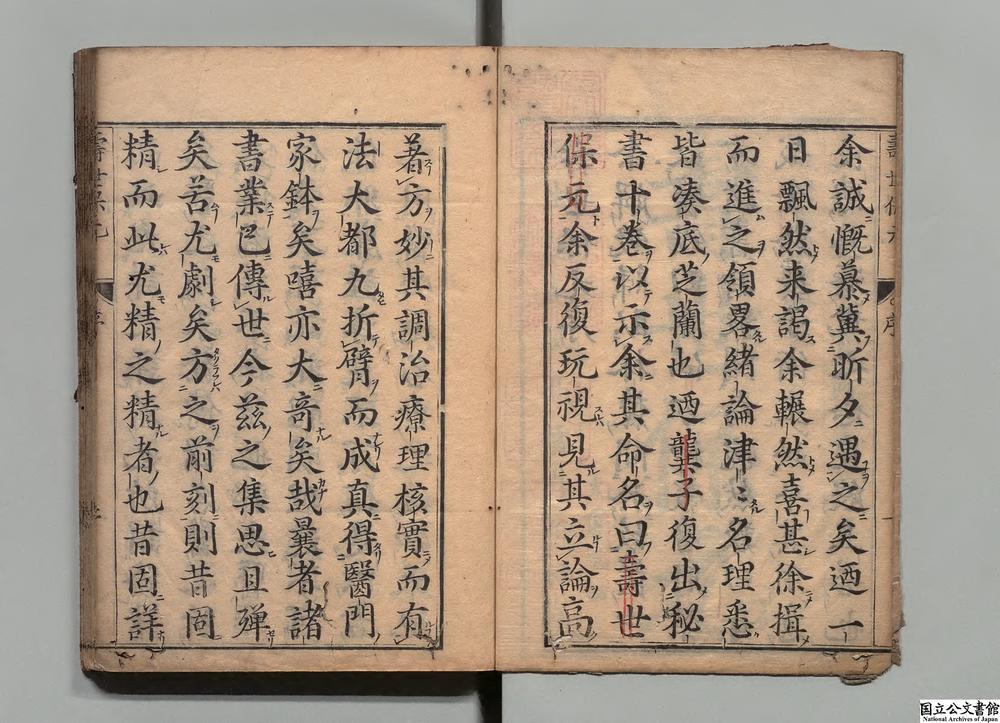 余誠慨慕冀昕夕遇之矣迺一
日飄然来謁余輾然喜甚徐揖
而進之領畧緒論津〻名理悉
皆凑底芝蘭也迺龔子復出秘
書十卷以示余其命名曰壽世
保元余反復玩視見其立論高
著方妙其調治療理核實而有
法大都九折臂而成真得醫門
家鉢矣嘻亦大奇矣哉曩者諸
書業已傳世今兹之集思且殫
矣苦尤劇矣方之前刻則昔固
精而此尤精之精者也昔固詳
壽世保元
序
国立公文書館
National Archives of Japan